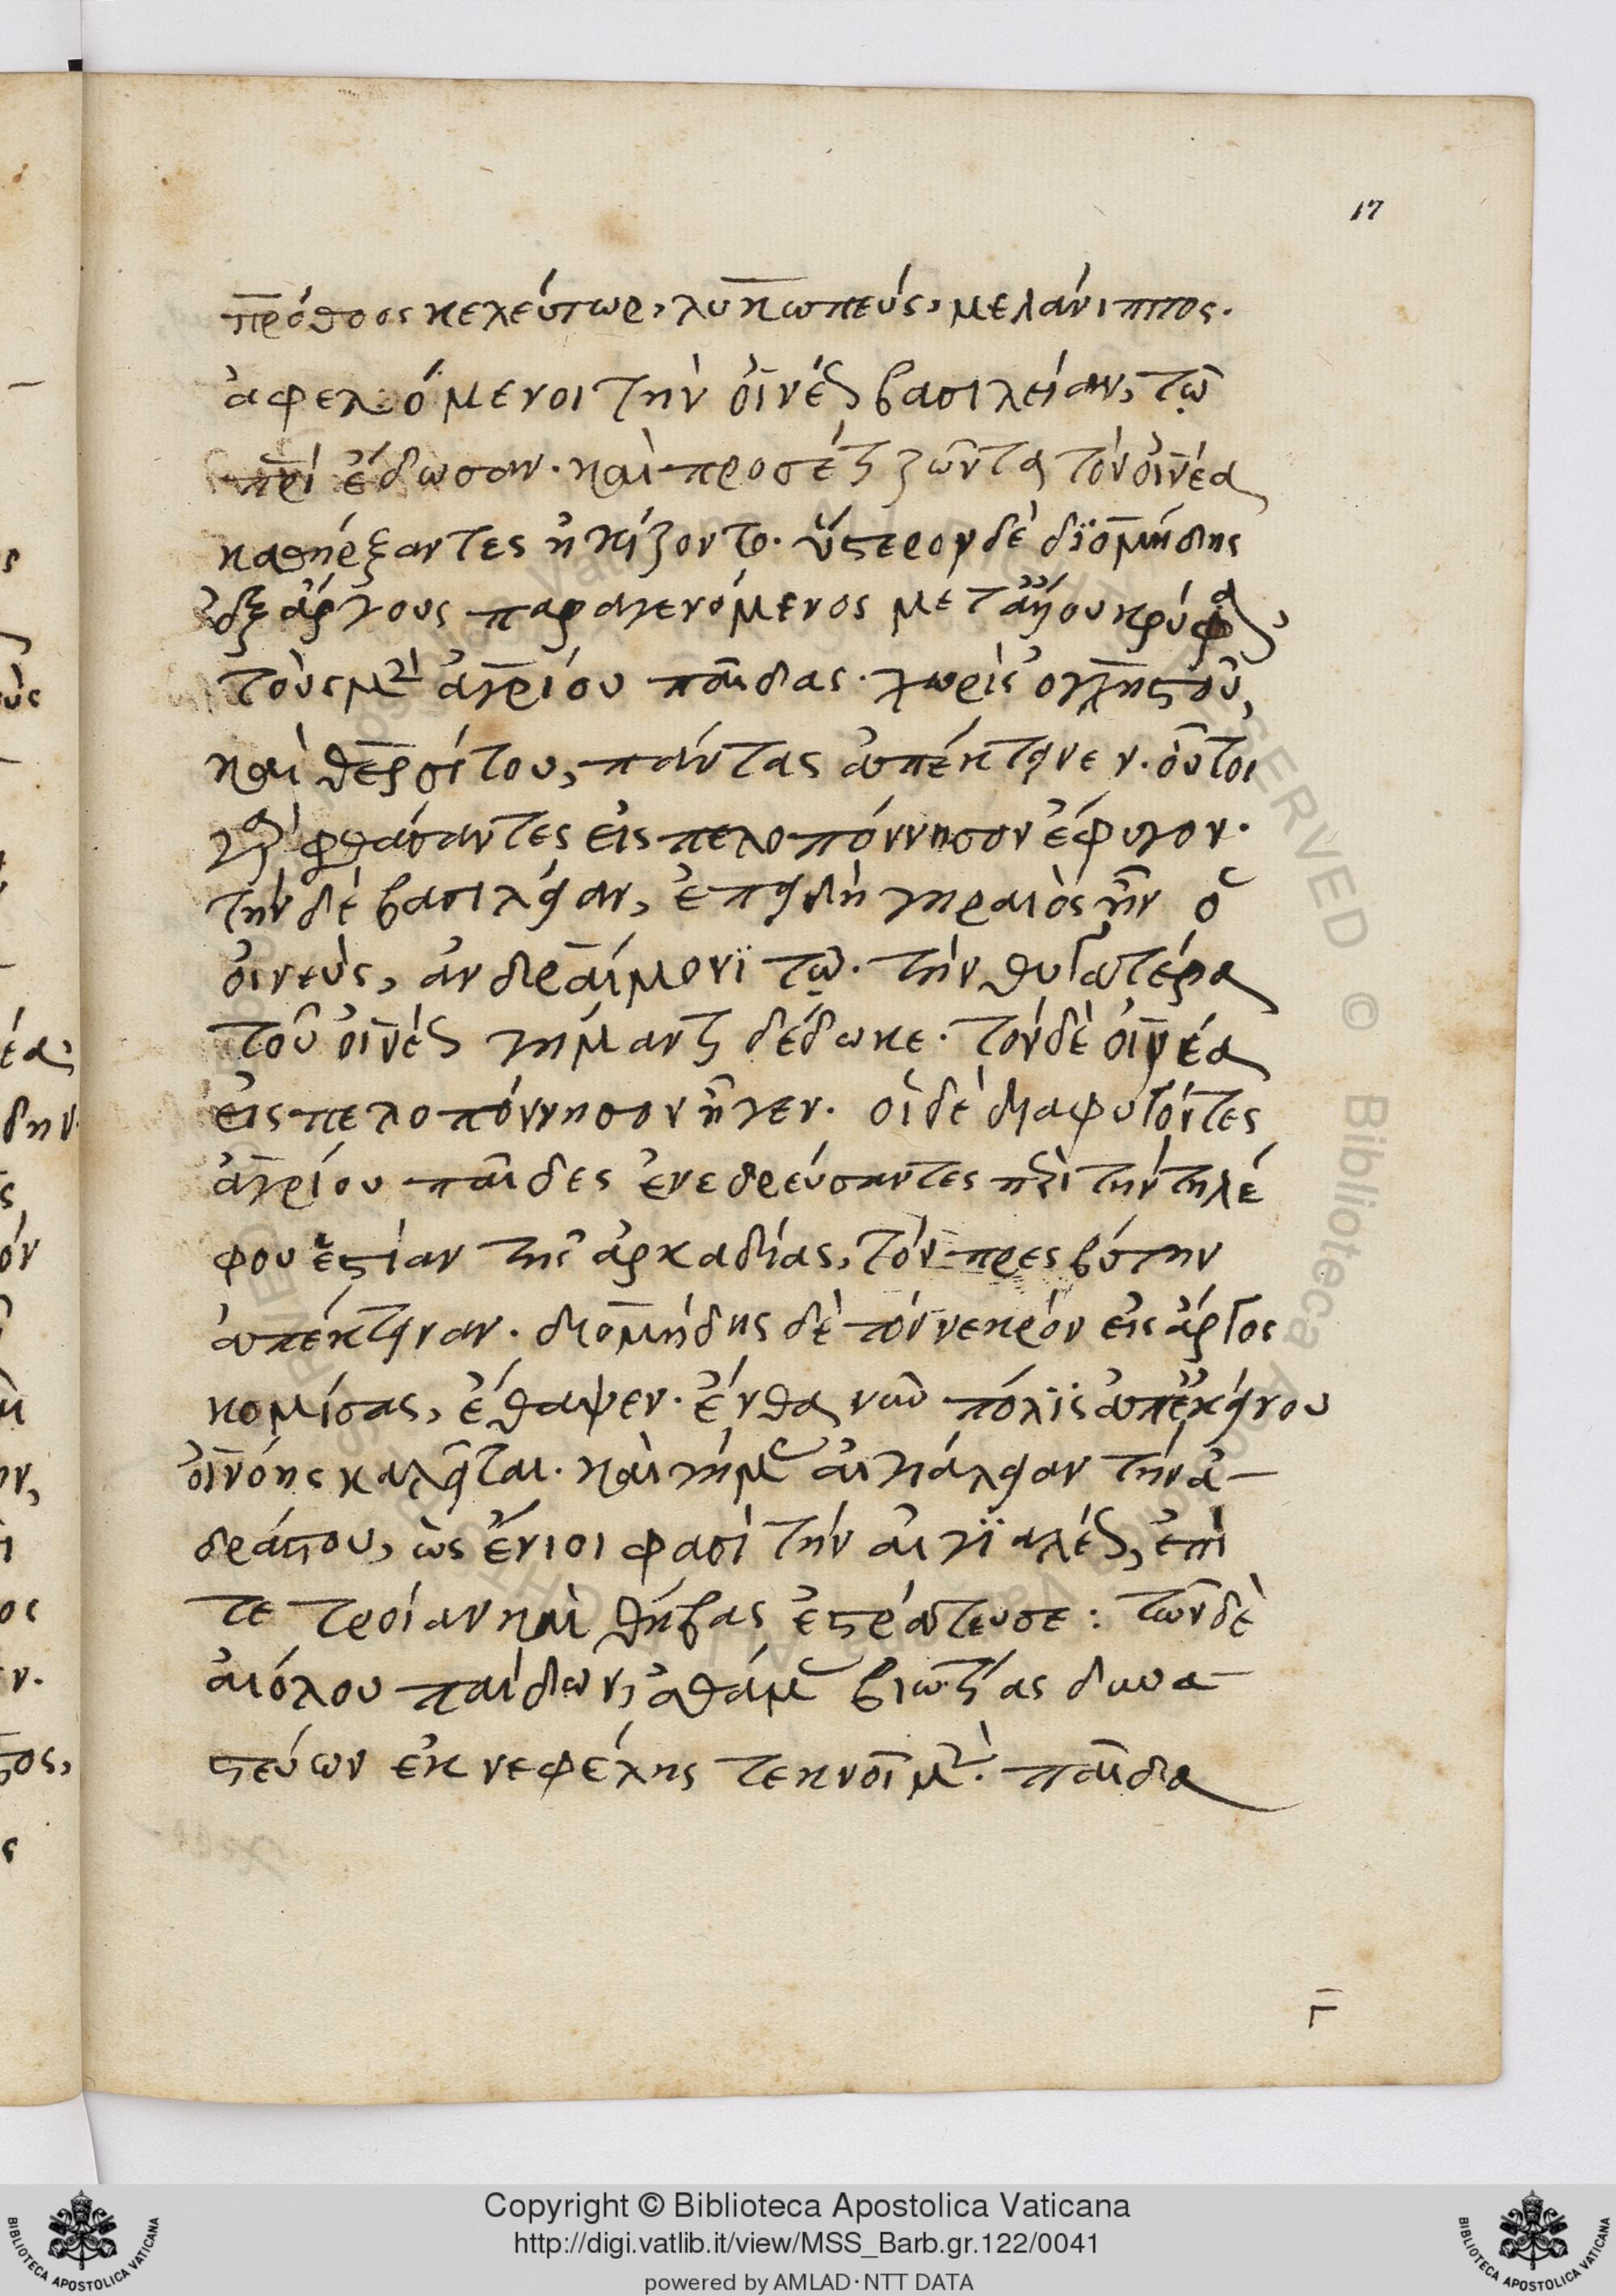 17
πρόθοος κελεύτωρ, λυκωπεύς, μελάνιππος.
ἀφελόμενοι τὴν οἰνέως βασιλείαν, τῶ
πρὶ ἔδωσαν. καὶ προσέτι ζῶντα τὸν οἰνέα
καθήρξαντες ἠκίζοντο. ὕστερον δὲ διομήδης
ἐξ ἄργους παραγενόμενος μετ' ἄλλου κρύφα
τοὺς μὲν ἀγρίου παῖδας. χωρὶς ὀγχηστοῦ,
καὶ θερσίτου, πάντας ἀπέκτεινεν. οὗτοι
γὰρ φθάσαντες εἰς πελοπόννησον ἔφυγον.
τὴν δὲ βασιλείαν, ἐπειδὴ γηραιὸς ἦν ὁ
οἰνεὺς, ἀνδραίμονι τῶ. τὴν θυγατέρα
τοῦ οἰνέως γήμαντι δέδωκε. τὸν δὲ οἰνέα
εἰς πελοπόννησον ἦγεν. οἱ δὲ διαφυγόντες
ἀγρίου παῖδες ἐνεδρεύσαντες περὶ τὴν τηλέ
φου ἑστίαν τῆς ἀρκαδίας, τὸν πρεσβύτην
ἀπέκτειναν. διομήδης δὲ τὸν νεκρὸν εἰς ἄργος
κομίσας, ἔθαψεν. ἔνθα νῦν πόλις ἀπ' ἐκείνου
οἰνόης καλεῖται. καὶ γήμας αἰγιάλειαν τὴν ἀ-
δράστου, ὡς ἔνιοι φασὶ τὴν αἰγιαλέως, ἐπὶ
τε τροίαν καὶ θήβας ἐστράτευσε: τῶν δὲ
αἰόλου παίδων, ἀθάμας βιωτίας δυνα-
στεύων ἐκ νεφέλης τεκνοῖ μὲν. παῖδα
Γ
Copyright © Biblioteca Apostolica Vaticana
http://digi.vatlib.it/view/MSS_Barb.gr.122/0041
powered by AMLAD·NTT DATA
BIBLIOTECA APOSTOLICA VATICANA
BIBLIOTECA APOSTOLICA VATICANA